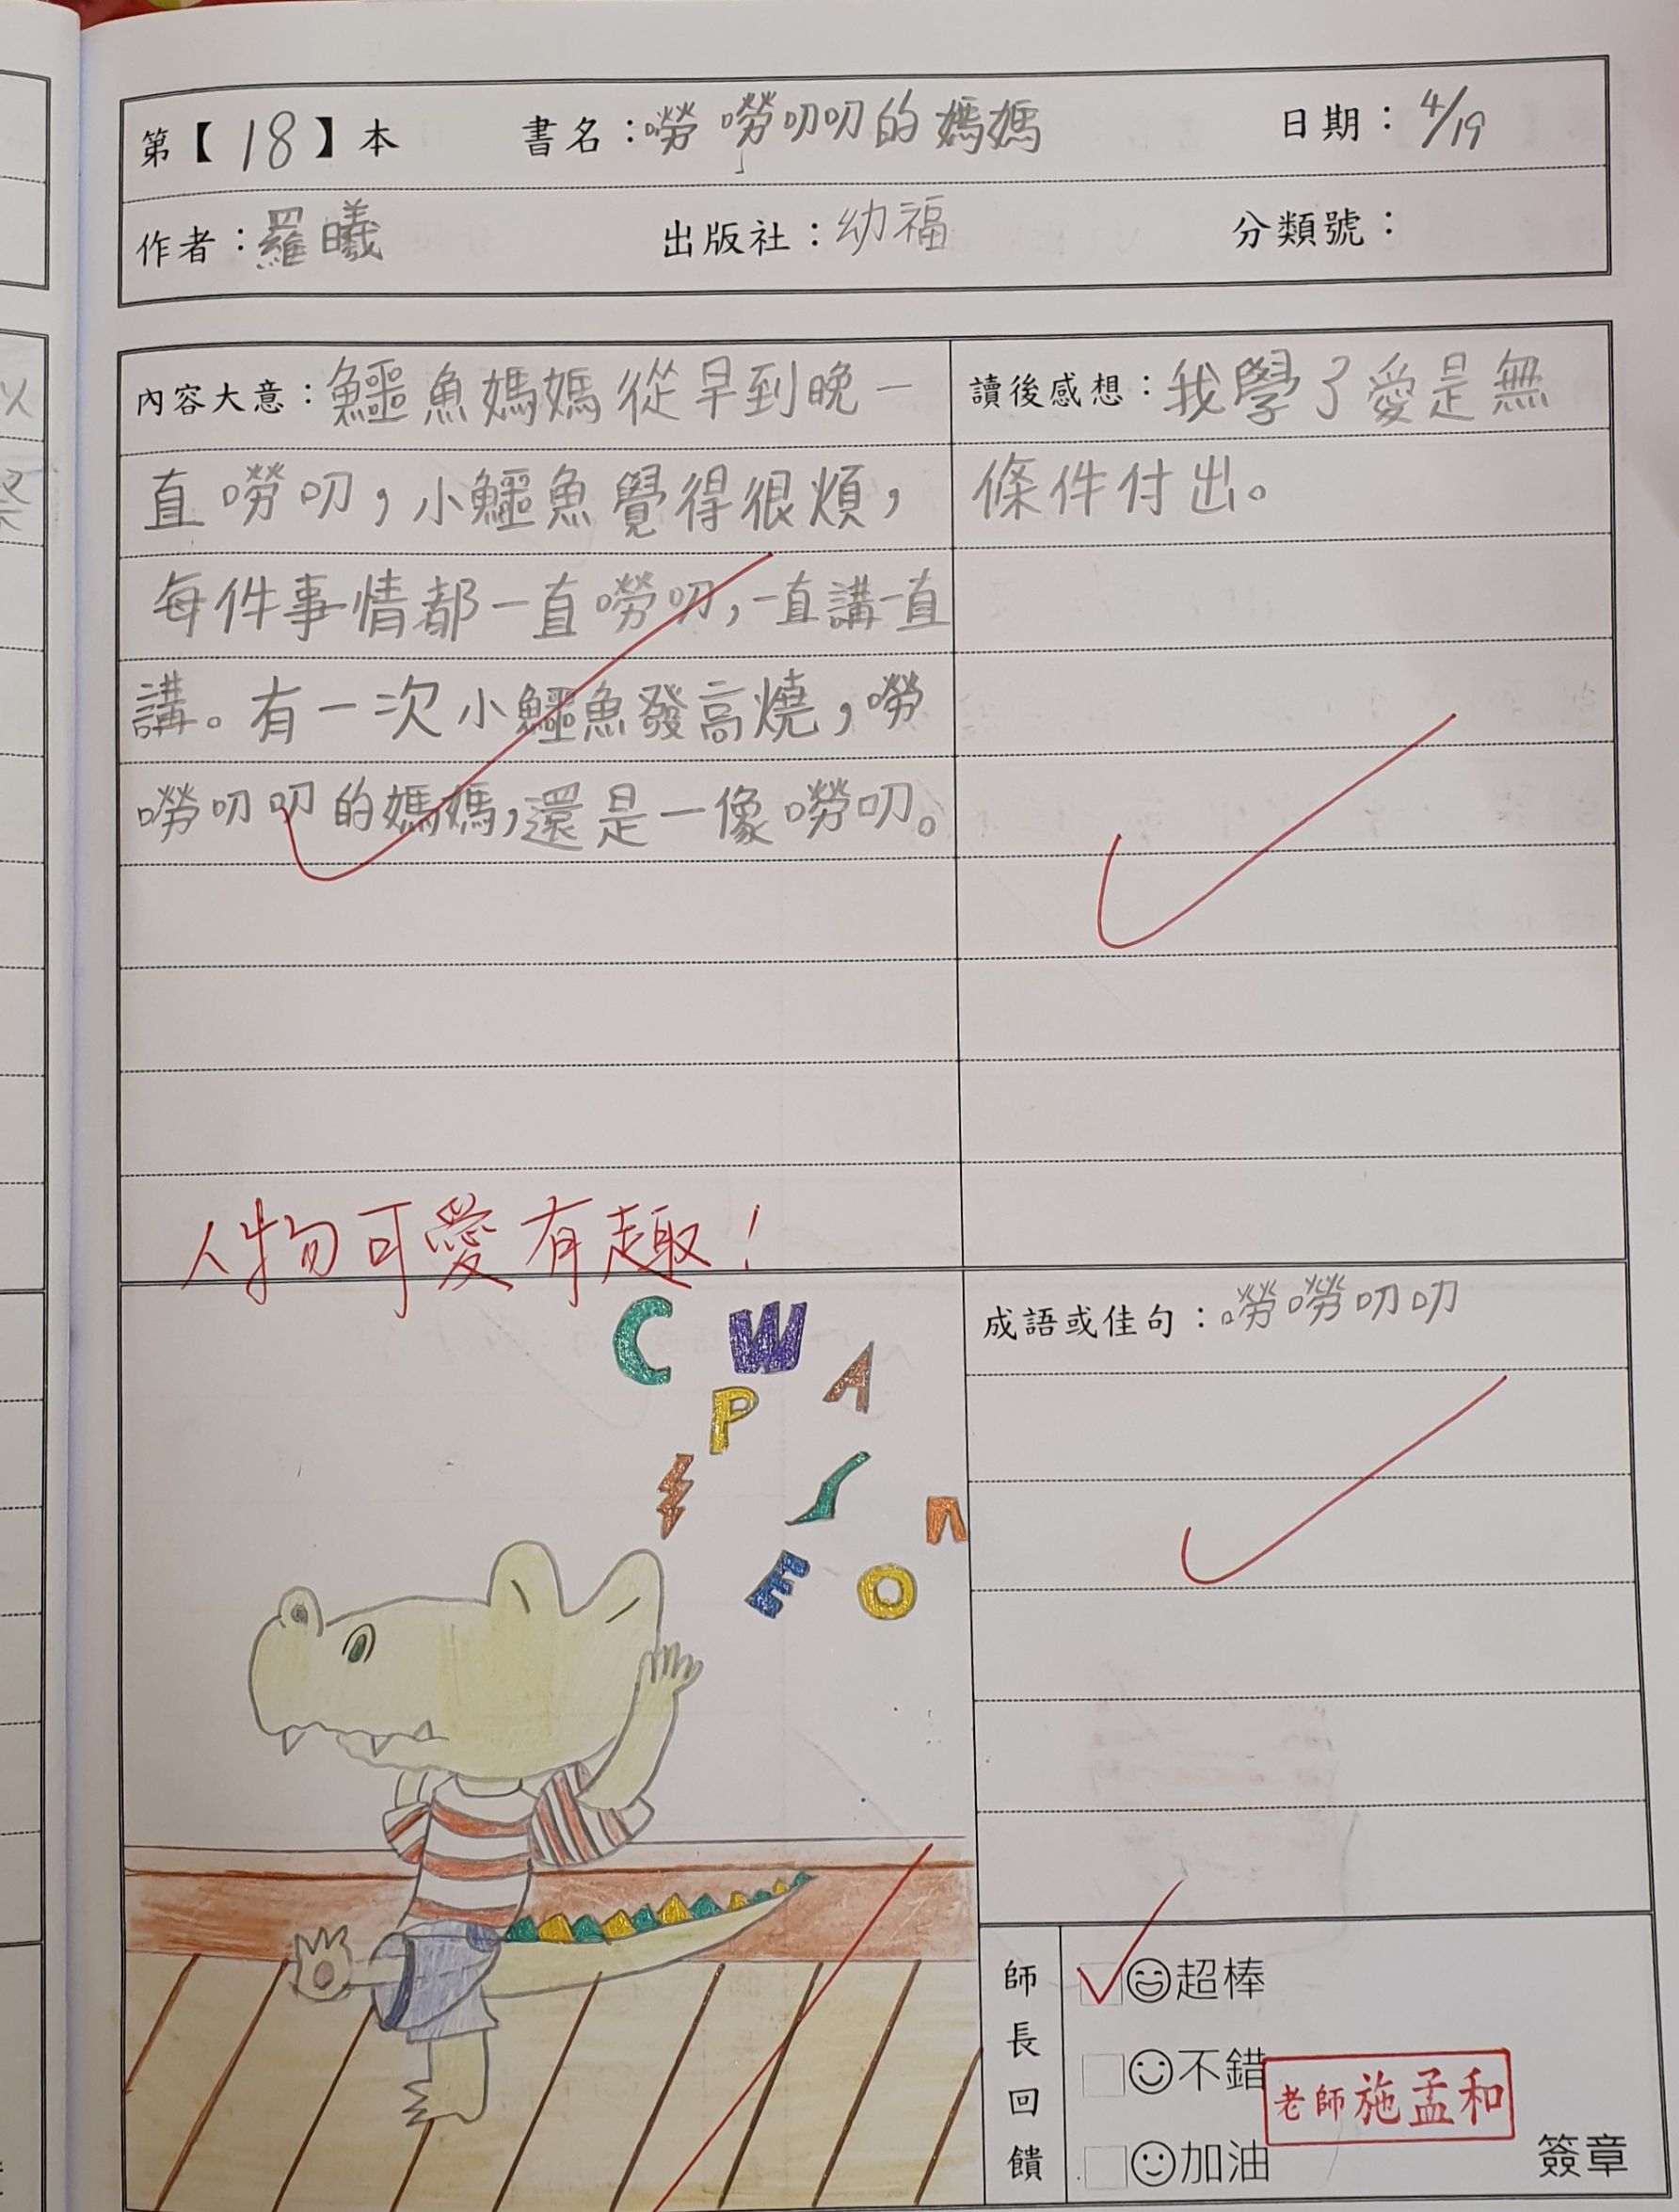 第【18】本 書名：嘮嘮叨叨的媽媽 日期：4/19
作者：羅曦 出版社：幼福 分類號：
內容大意：鱷魚媽媽從早到晚一
直嘮叨，小鱷魚覺得很煩，
每件事情都一直嘮叨，一直講一直
講。有一次小鱷魚發高燒，嘮
嘮叨叨的媽媽，還是一像嘮叨。
讀後感想：我學了愛是無
條件付出。
人物可愛有趣！
C W A
P
n
E O
成語或佳句：嘮嘮叨叨
師長回饋
超棒
不錯
加油
老師施孟和
簽章